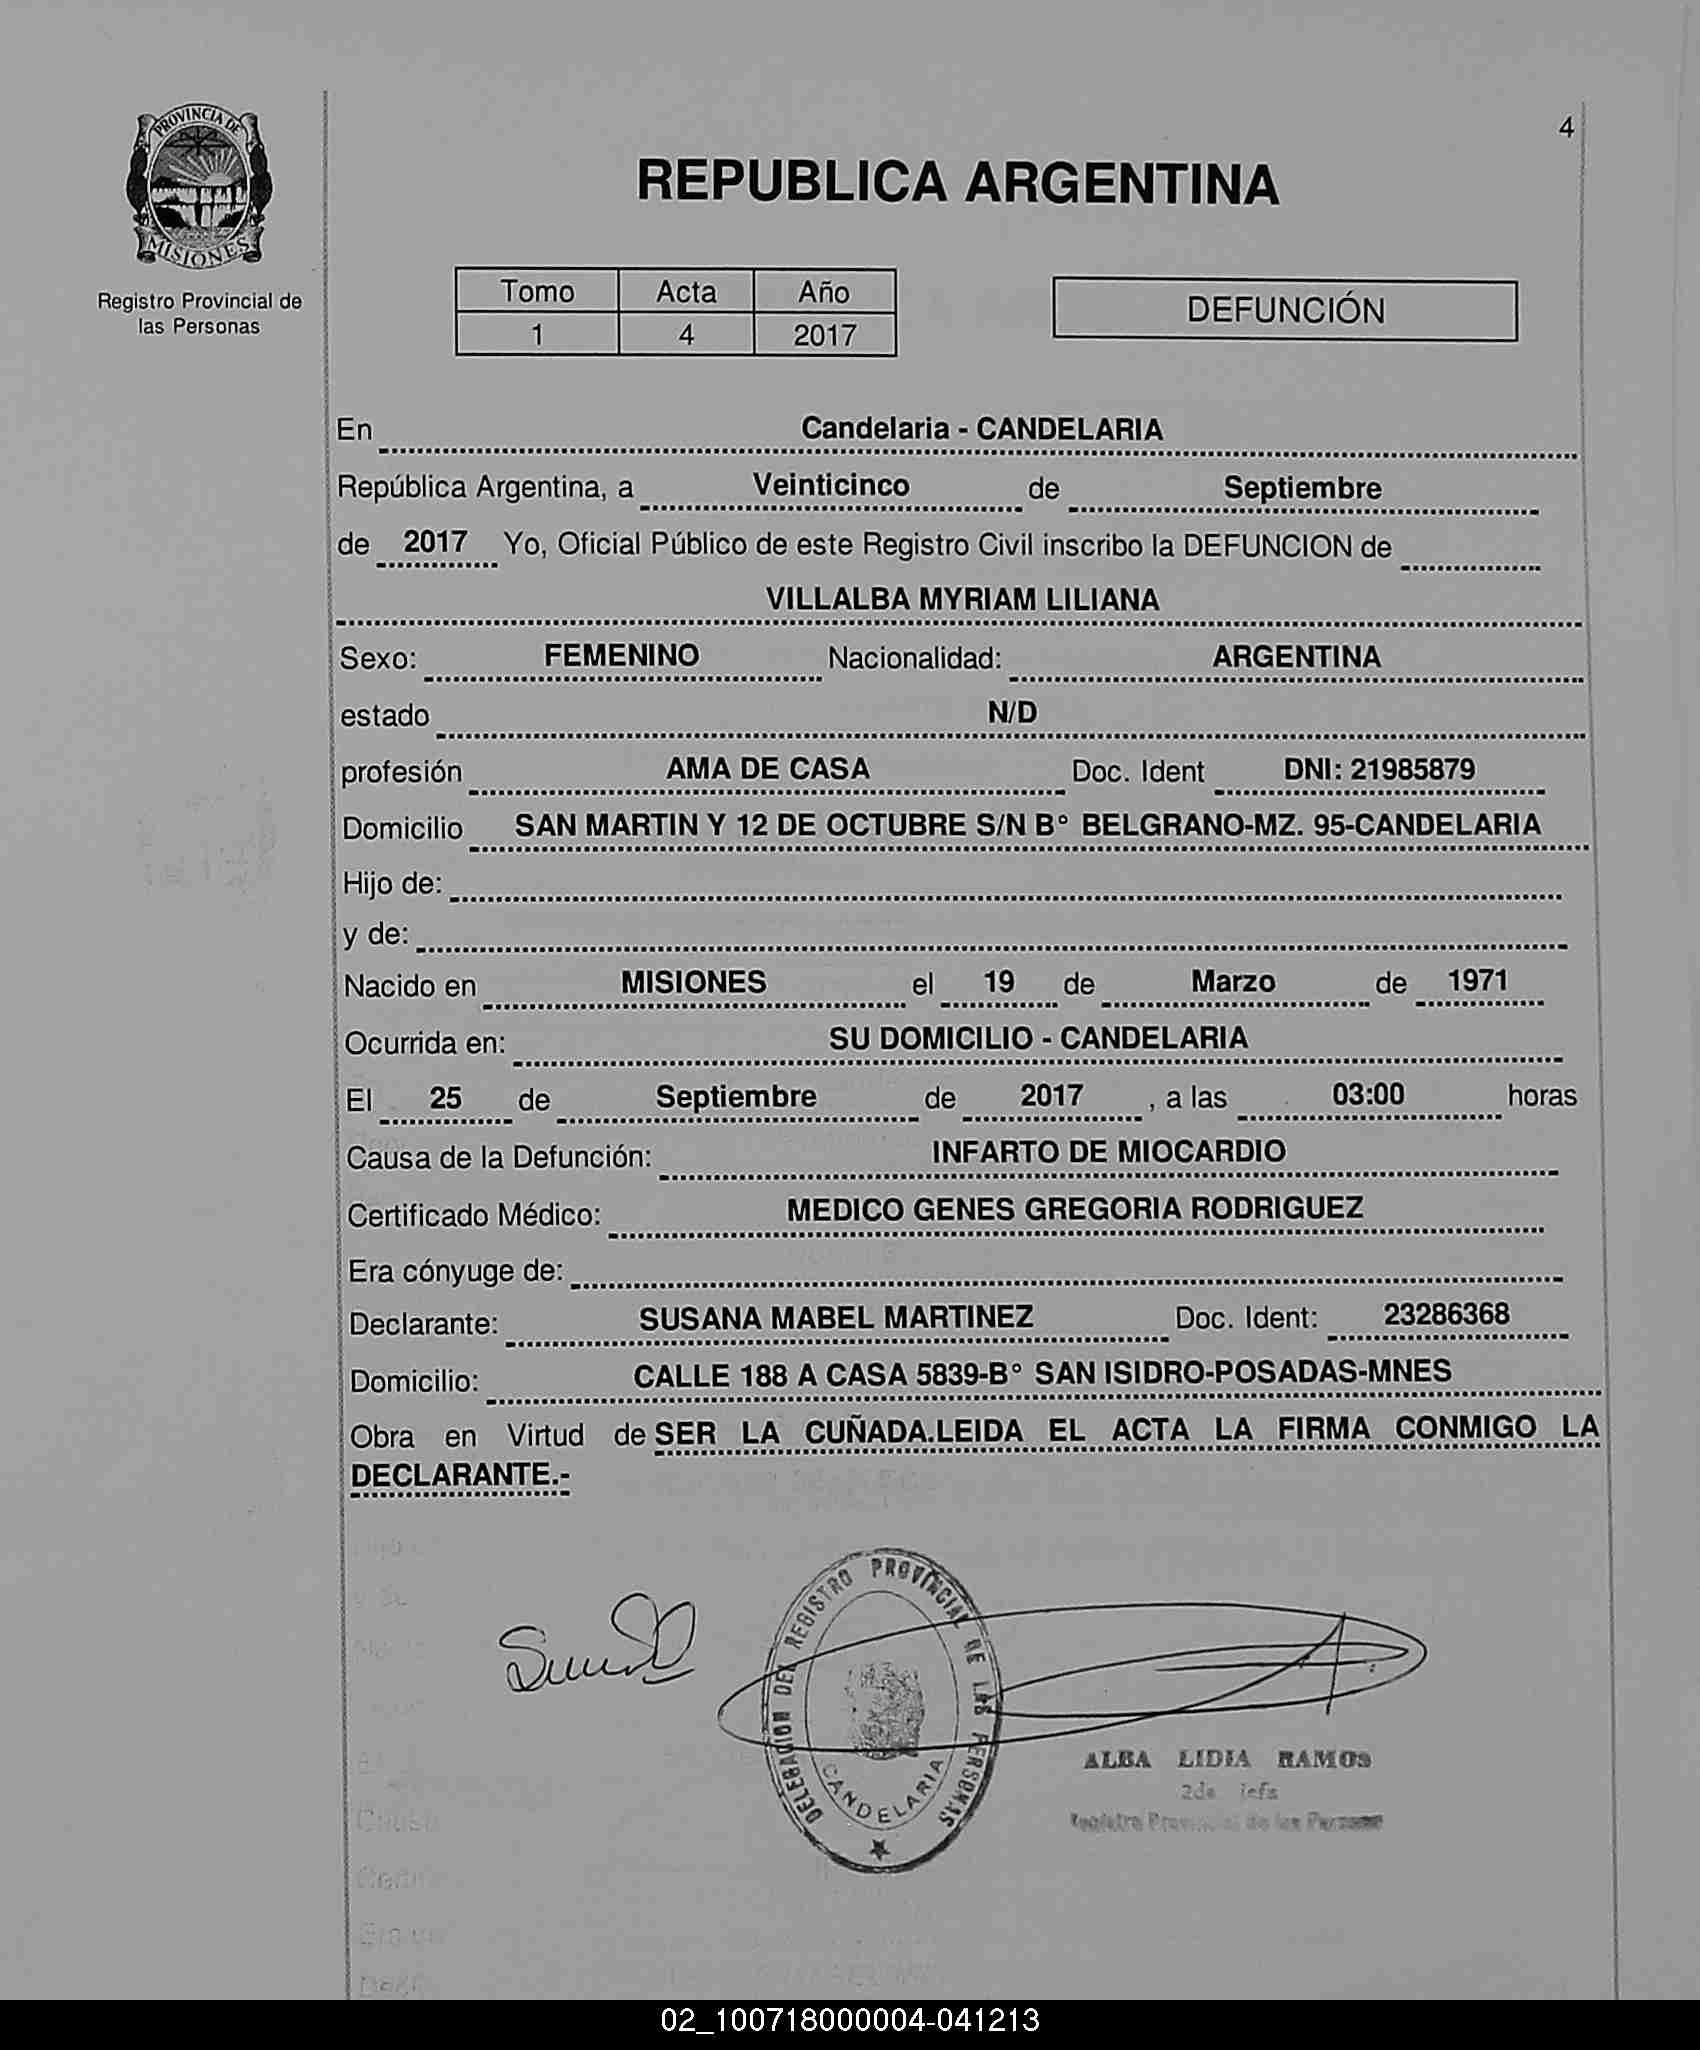 4
PROVINCIA DE
MISIONES
Registro Provincial de
las Personas
REPUBLICA ARGENTINA
Tomo Acta Año
1 4 2017
DEFUNCIÓN
En Candelaria - CANDELARIA
República Argentina, a Veinticinco de Septiembre
de 2017 Yo, Oficial Público de este Registro Civil inscribo la DEFUNCION de
VILLALBA MYRIAM LILIANA
Sexo: FEMENINO Nacionalidad: ARGENTINA
estado N/D
profesión AMA DE CASA Doc. Ident DNI: 21985879
Domicilio SAN MARTIN Y 12 DE OCTUBRE S/N B° BELGRANO-MZ. 95-CANDELARIA
Hijo de:
y de:
Nacido en MISIONES el 19 de Marzo de 1971
Ocurrida en: SU DOMICILIO - CANDELARIA
El 25 de Septiembre de 2017 , a las 03:00 horas
Causa de la Defunción: INFARTO DE MIOCARDIO
Certificado Médico: MEDICO GENES GREGORIA RODRIGUEZ
Era cónyuge de:
Declarante: SUSANA MABEL MARTINEZ Doc. Ident: 23286368
Domicilio: CALLE 188 A CASA 5839-B° SAN ISIDRO-POSADAS-MNES
Obra en Virtud de SER LA CUÑADA.LEIDA EL ACTA LA FIRMA CONMIGO LA
DECLARANTE.-
DELEGACION DEL REGISTRO PROVINCIAL DE LAS PERSONAS
CANDELARIA
ALBA LIDIA RAMOS
2da jefa
Registro Provincial de las Personas
02_100718000004-041213